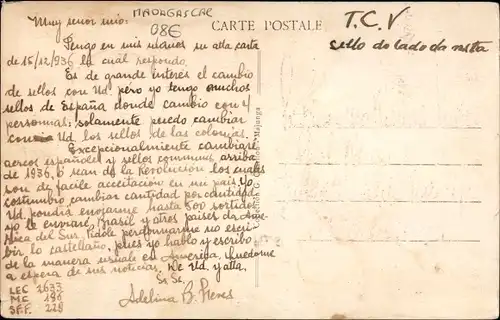 MADAGASCAR
CARTE POSTALE
08€
T.C.V
sello do lado da vista
Muy senor mio:
Tengo en mis manos su atta carta
de 15/12/936 la cuál respondo.
Es de grande interés el cambio
de sellos con Ud, pero yo tengo muchos
sellos de España donde cambio con 4
personnas; solamente puedo cambiar
con Ud. los sellos de las colonias.
Excepcionalmente cambiaré
aereos españoles y sellos communs arriba
de 1936, o sean da Revolución los cuales
son de facile acceitación en mi pais. Yo
costumbro cambiar cantidad por cantidad
Ud. pondrá enviarme hasta 500 sortidos
yo le enviaré, Brasil y otros paises da Ame-
rica del Sur. Pidole perdonarme no escri-
bir, lo castellaño, pues yo hablo y escribo
de la manera usuale en America. Quedome
a espera de sus noticias. De Ud. y atta,
Ss Ss,
Adelina B.
LEC 2633
MC 186
SFF. 228
Majunga